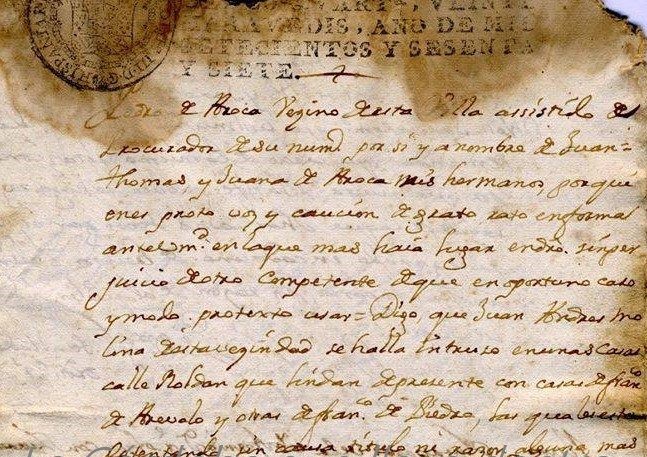 QUARTO, VEINTE
MARAVEDIS, AÑO DE MIL
SETECIENTOS Y SESENTA
Y SIETE.
Pedro de Aroca Vezino desta Villa assistido de
Procurador de su num.º por si y a nombre de Juan=
Thomas y Juana de Aroca mis hermanos, porqui
enes presto voz y caucion de grato rato enforma
ante Vm.d enlaque mas haia lugar endro. sinper
juicio de otro competente de que en oportuno caso
y modo protexto usar= Digo, que Juan Andres Mo
lina destavezindad se halla intruso enunas casas
calle Roldan que lindan depresente con casas de fran.co
de Arevalo y otras de fran.co de Biedra, las que
detentando sin causa titulo ni razon alguna, mas